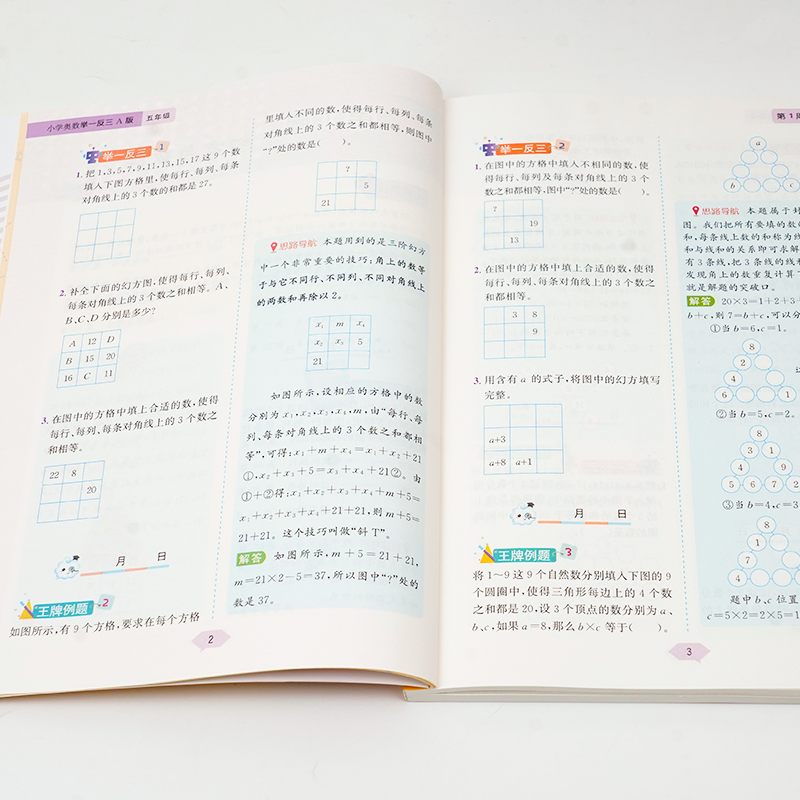 小学奥数举一反三A版 五年级
举一反三 1
1. 把1,3,5,7,9,11,13,15,17这9个数
填入下图方格里,使每行、每列、每条
对角线上的3个数的和都是27。
2. 补全下面的幻方图,使得每行、每列、
每条对角线上的3个数之和相等。A、
B、C、D分别是多少?
A 12 D
B 15 20
16 C 11
3. 在图中的方格中填上合适的数,使得
每行、每列、每条对角线上的3个数之
和相等。
22 8
20
月 日
王牌例题 2
如图所示,有9个方格,要求在每个方格
里填入不同的数,使得每行、每列、每条
对角线上的3个数之和都相等,则图中
“?”处的数是( )。
?
5
21
思路导航 本题用到的是三阶幻方
中一个非常重要的技巧:角上的数等
于与它不同行、不同列、不同对角线上
的两数和再除以2。
x₁ m x₄
x₂ x₃ 5
21
如图所示,设相应的方格中的数
分别为x₁,x₂,x₃,x₄,m,由“每行、每
列、每条对角线上的3个数之和都相
等”,可得:x₁+m+x₄=x₁+x₂+21
①,x₂+x₃+5=x₃+x₄+21②。由
①+②得:x₁+x₂+x₃+x₄+m+5=
x₁+x₂+x₃+x₄+21+21,则m+5=
21+21。这个技巧叫做“斜T”。
解答 如图所示,m+5=21+21,
m=21×2-5=37,所以图中“?”处的
数是37。
2
举一反三 2
1. 在图中的方格中填入不相同的数,使
得每行、每列及每条对角线上的3个
数之和都相等,图中“?”处的数是( )。
?
19
13
2. 在图中的方格中填上合适的数,使得
每行、每列、每条对角线上的3个数之
和都相等。
3 8
9
3. 用含有a的式子,将图中的幻方填写
完整。
a+3
a+8 a+1
月 日
王牌例题 3
将1~9这9个自然数分别填入下图的9
个圆圈中,使得三角形每边上的4个数
之和都是20,设3个顶点的数分别为a、
b、c,如果a=8,那么b×c等于( )。
3
第1周
a
b c
思路导航 本题属于封
图。我们把所有要填的数的
和,每条线上数的和称为线
和与线和的关系即可求解
有3条线,把3条线的线和
发现角上的数重复计算了
就是解题的突破口。
解答 20×3=1+2+3+
b+c,则7=b+c,可以分
①当b=6,c=1。
8
2
4
6 1
②当b=5,c=2。
8
3 1
4 9
5 6 7 2
③当b=4,c=3
8
题中b、c位置
c=5×2=2×5=1